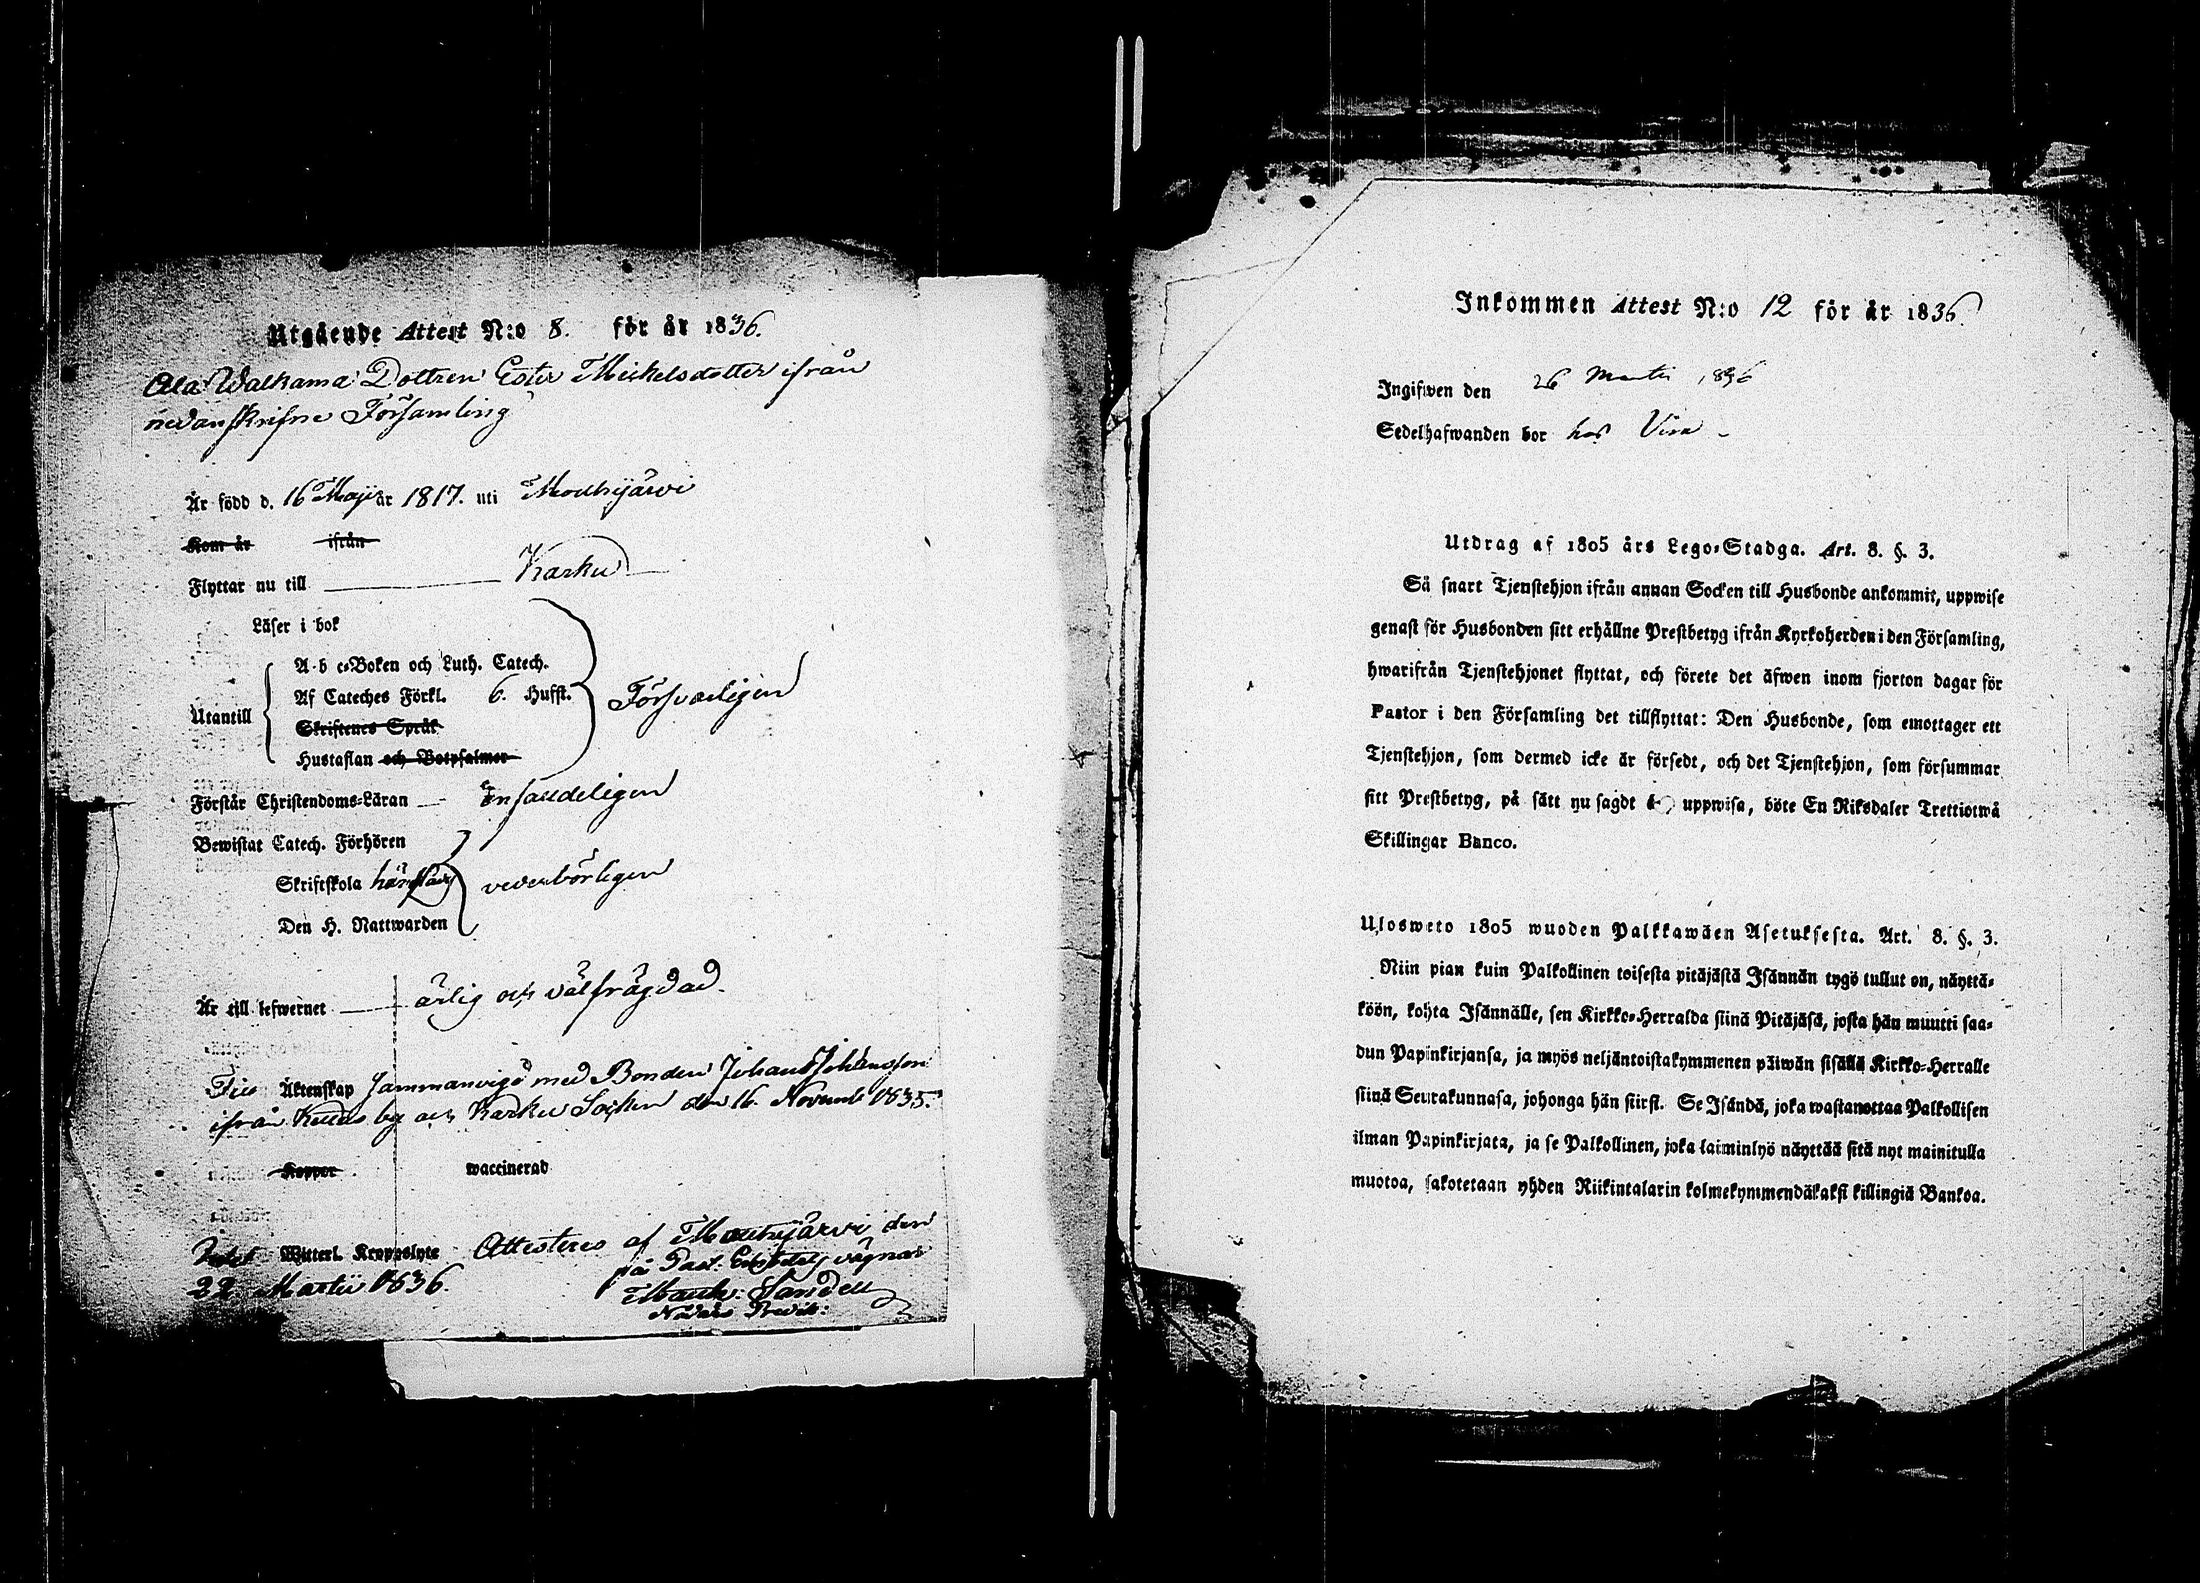 Utgående Attest N:o 8. för år 1836.
Ala Walkama Dottren Ester Michelsdotter ifrån
nedanskrifne Församling
Är född d. 16 Maji år 1817. uti Mouhijärvi
Kom år ifrån
Flyttar nu till Karku
Läser i bok
A-b c-Boken och Luth. Catech.
Af Cateches Förkl. 6. Hufst.
Utantill
Skriftenes Språk
Försvarligen
Hustaflan och Botpsalmer
Förstår Christendoms-Läran Enfaldeligen
Bewistat Catech. Förhören
Skriftskola vederbörligen
Den H. Nattwarden
Är till lefwernet ärlig och välfrägdad.
Till Äktenskap sammanvigd med Bonden Johan Johansson
ifrån by och Karku Socken den 16 Novemb 1835.
Koppor waccinerad
Witterl. Kroppslyte Attesteras af Mouhijärvi den
22 Martii 1836. på Past. vägnar
Sandell
Nådårs Predik:
Inkommen Attest N:o 12 för år 1836
Ingifwen den 26 Martii 1836
Sedelhafwanden bor hos
Utdrag af 1805 års Lego-Stadga. Art. 8. §. 3.
Så snart Tjenstehjon ifrån annan Socken till Husbonde ankommit, uppwise
genast för Husbonden sitt erhållne Prestbetyg ifrån Kyrkoherden i den Församling,
hwarifrån Tjenstehjonet flyttat, och förete det äfwen inom fjorton dagar för
Pastor i den Församling det tillflyttat: Den Husbonde, som emottager ett
Tjenstehjon, som dermed icke är försedt, och det Tjenstehjon, som försummar
sitt Prestbetyg, på sätt nu sagdt är, uppwisa, böte En Riksdaler Trettiotwå
Skillingar Banco.
Ulosweto 1805 wuoden Palkkawäen Asetuksesta. Art. 8. §. 3.
Niin pian kuin Palkollinen toisesta pitäjästä Isännän tygö tullut on, näyttä-
köön, kohta Isännälle, sen Kirkko-Herralda siinä Pitäjäsä, josta hän muutti saa-
dun Papinkirjansa, ja myös neljäntoistakymmenen päiwän sisällä Kirkko-Herralle
siinä Seurakunnasa, johonga hän siirst. Se Isändä, joka wastanottaa Palkollisen
ilman Papinkirjata, ja se Palkollinen, joka laiminlyö näyttää sitä nyt mainitulla
muotoa, sakotetaan yhden Riikintalarin kolmekymmendäkaksi killingiä Bankoa.